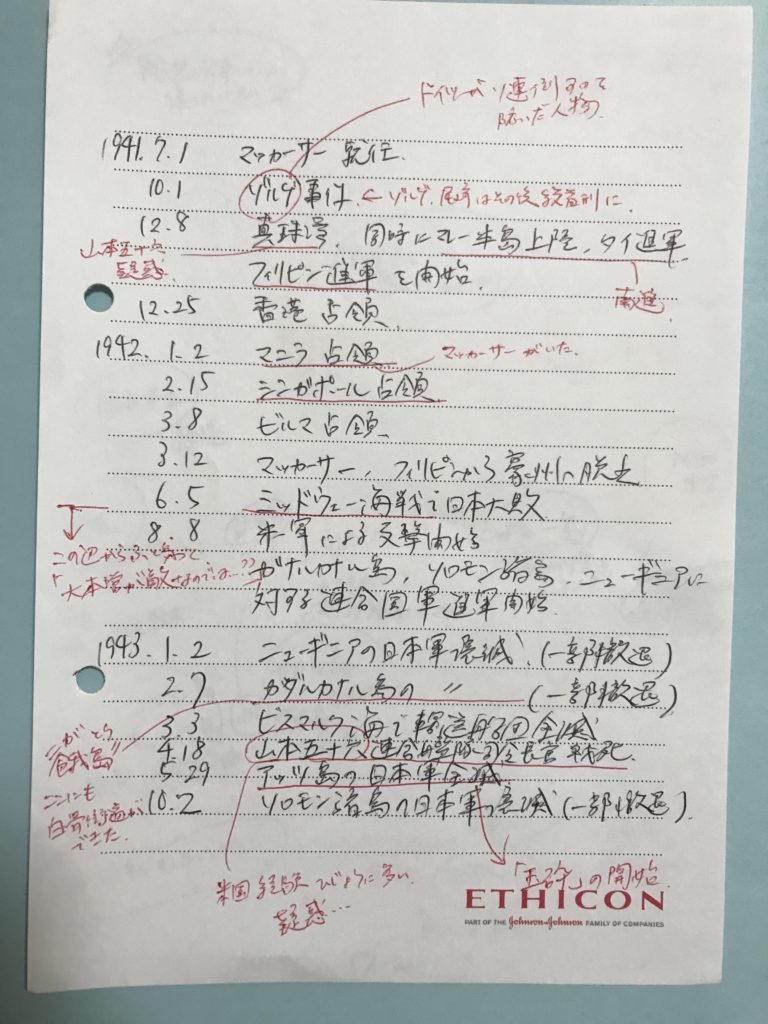 ドイツがソ連倒すのを
防いだ人物
1941.7.1 マッカーサー就任.
10.1 ゾルゲ事件. ← ゾルゲ、尾崎はその後絞首刑に.
12.8 真珠湾、同時にマレー半島上陸、タイ進軍
山本五十六
疑惑.
フィリピン進軍を開始.
南進
12.25 香港占領.
1942.1.2 マニラ占領 マッカーサーがいた.
2.15 シンガポール占領
3.8 ビルマ占領
3.12 マッカーサー、フィリピンから豪州へ脱出
6.5 ミッドウェー海戦で日本大敗
8.8 米軍による反撃開始
この辺からふと気づく
「大本営が敵なのでは…??」
ガナルカナル島、ソロモン諸島、ニューギニアに
対する連合国軍進軍開始.
1943.1.2 ニューギニアの日本軍潰滅、(一部撤退)
2.7 ガダルカナル島の 〃 (一部撤退)
3.3 ビスマルク海で輸送船団全滅
"がとう
餓島"
4.18 山本五十六連合艦隊司令長官戦死.
5.29 アッツ島の日本軍全滅
ここにも
白骨街道が
できた.
10.2 ソロモン諸島の日本軍潰滅(一部撤退)
米国経験ひじょうに多い
疑惑…
「玉砕」の開始.
ETHICON
PART OF THE Johnson & Johnson FAMILY OF COMPANIES